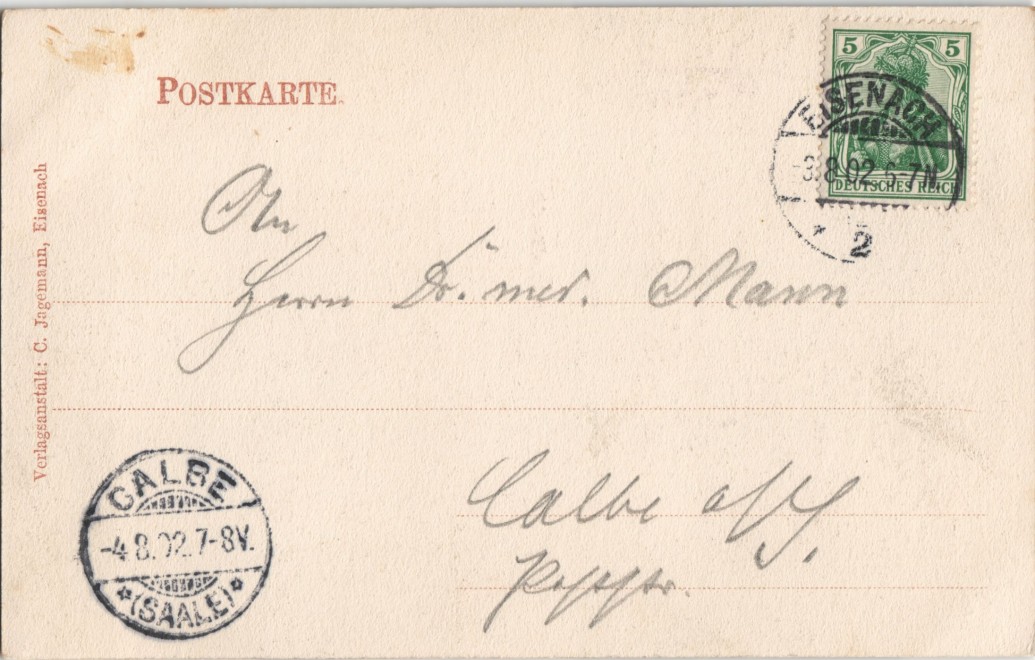 POSTKARTE.
5 5
DEUTSCHES REICH
EISENACH
-3.8.02.6-7N.
* 2
An
Herrn Dr. med. Mann
Calbe a/S.
Verlagsanstalt: C. Jagemann, Eisenach
CALBE
-4.8.02.7-8V.
*(SAALE)*